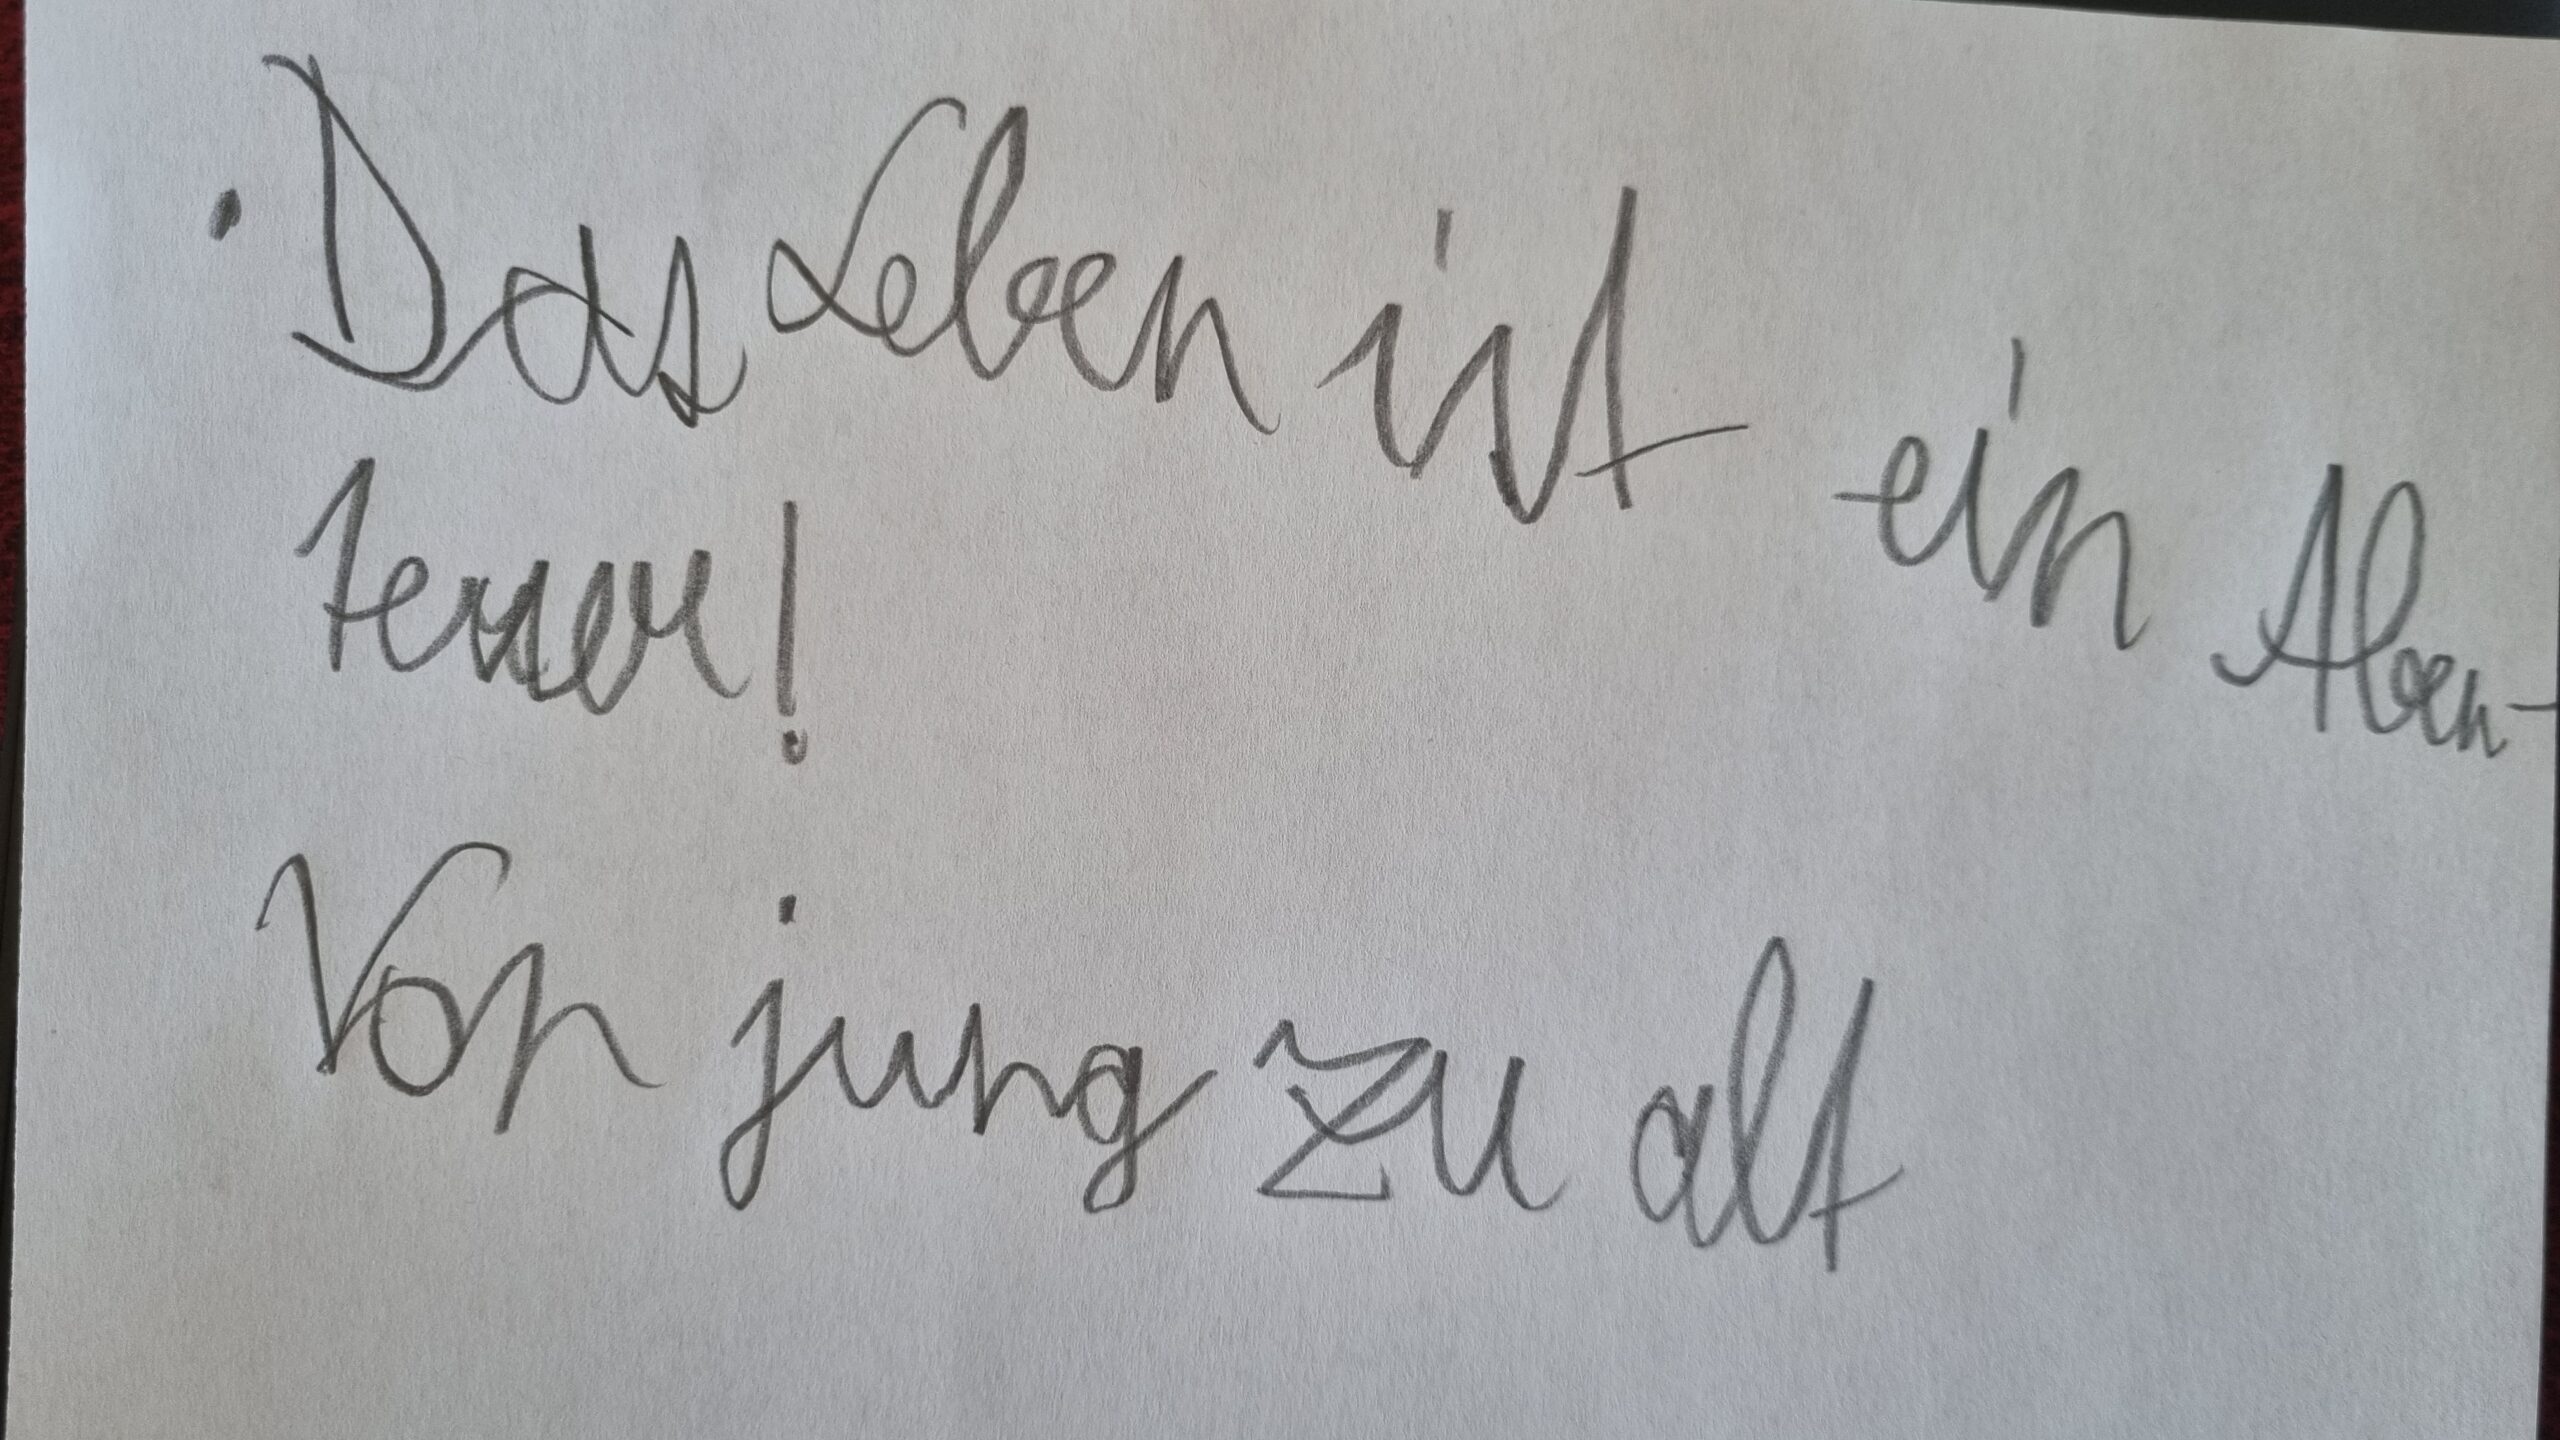 · Das Leben ist ein Aben-
teuer!
Von jung zu alt